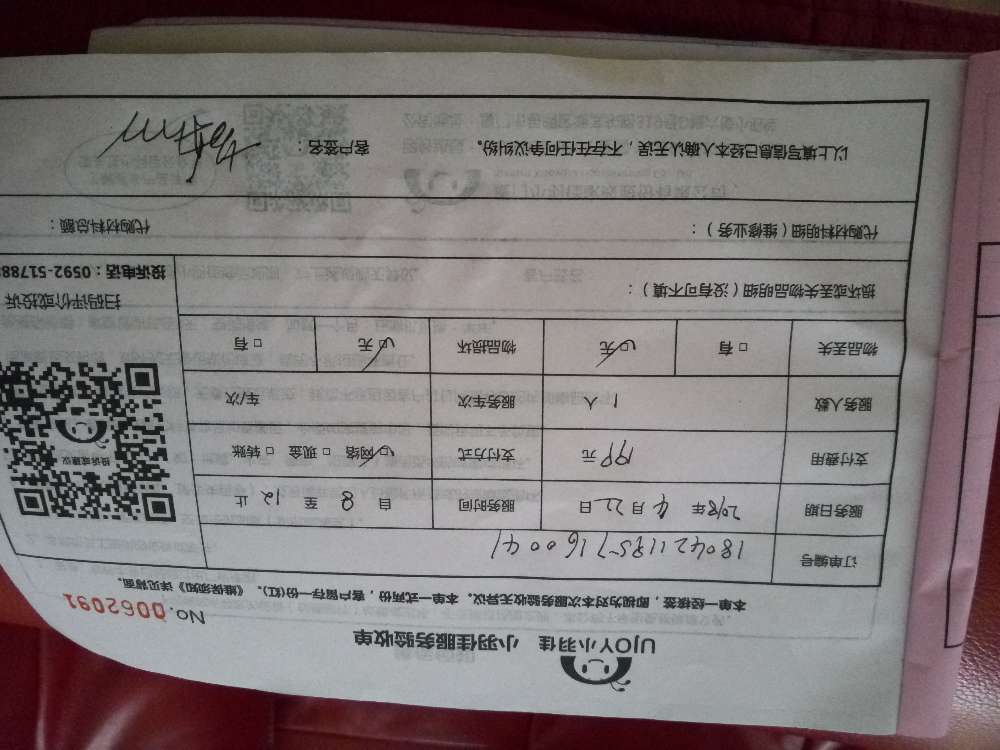 UJOY小羽佳 小羽佳服务验收单
No. 0062091
本单一经核签，即视为对本次服务验收无异议。本单一式两份，客户留存一份(红)。《维保须知》详见背面。
订单编号
服务日期 2018年 4月 22日 服务时间 自 8 至 12 止
支付费用 199 元 支付方式 ☑网络 □现金 □转账
服务人数 1 人 服务车次 车/次
物品丢失 □有 ☑无 物品损坏 ☑无 □有
投诉或建议
扫码评价或投诉
投诉电话：0592-51788
损坏或丢失物品明细（没有可不填）：
代购材料明细（维修业务）： 代购材料总额：
以上填写信息已经本人确认无误，不存在任何争议纠纷。 客户签名：